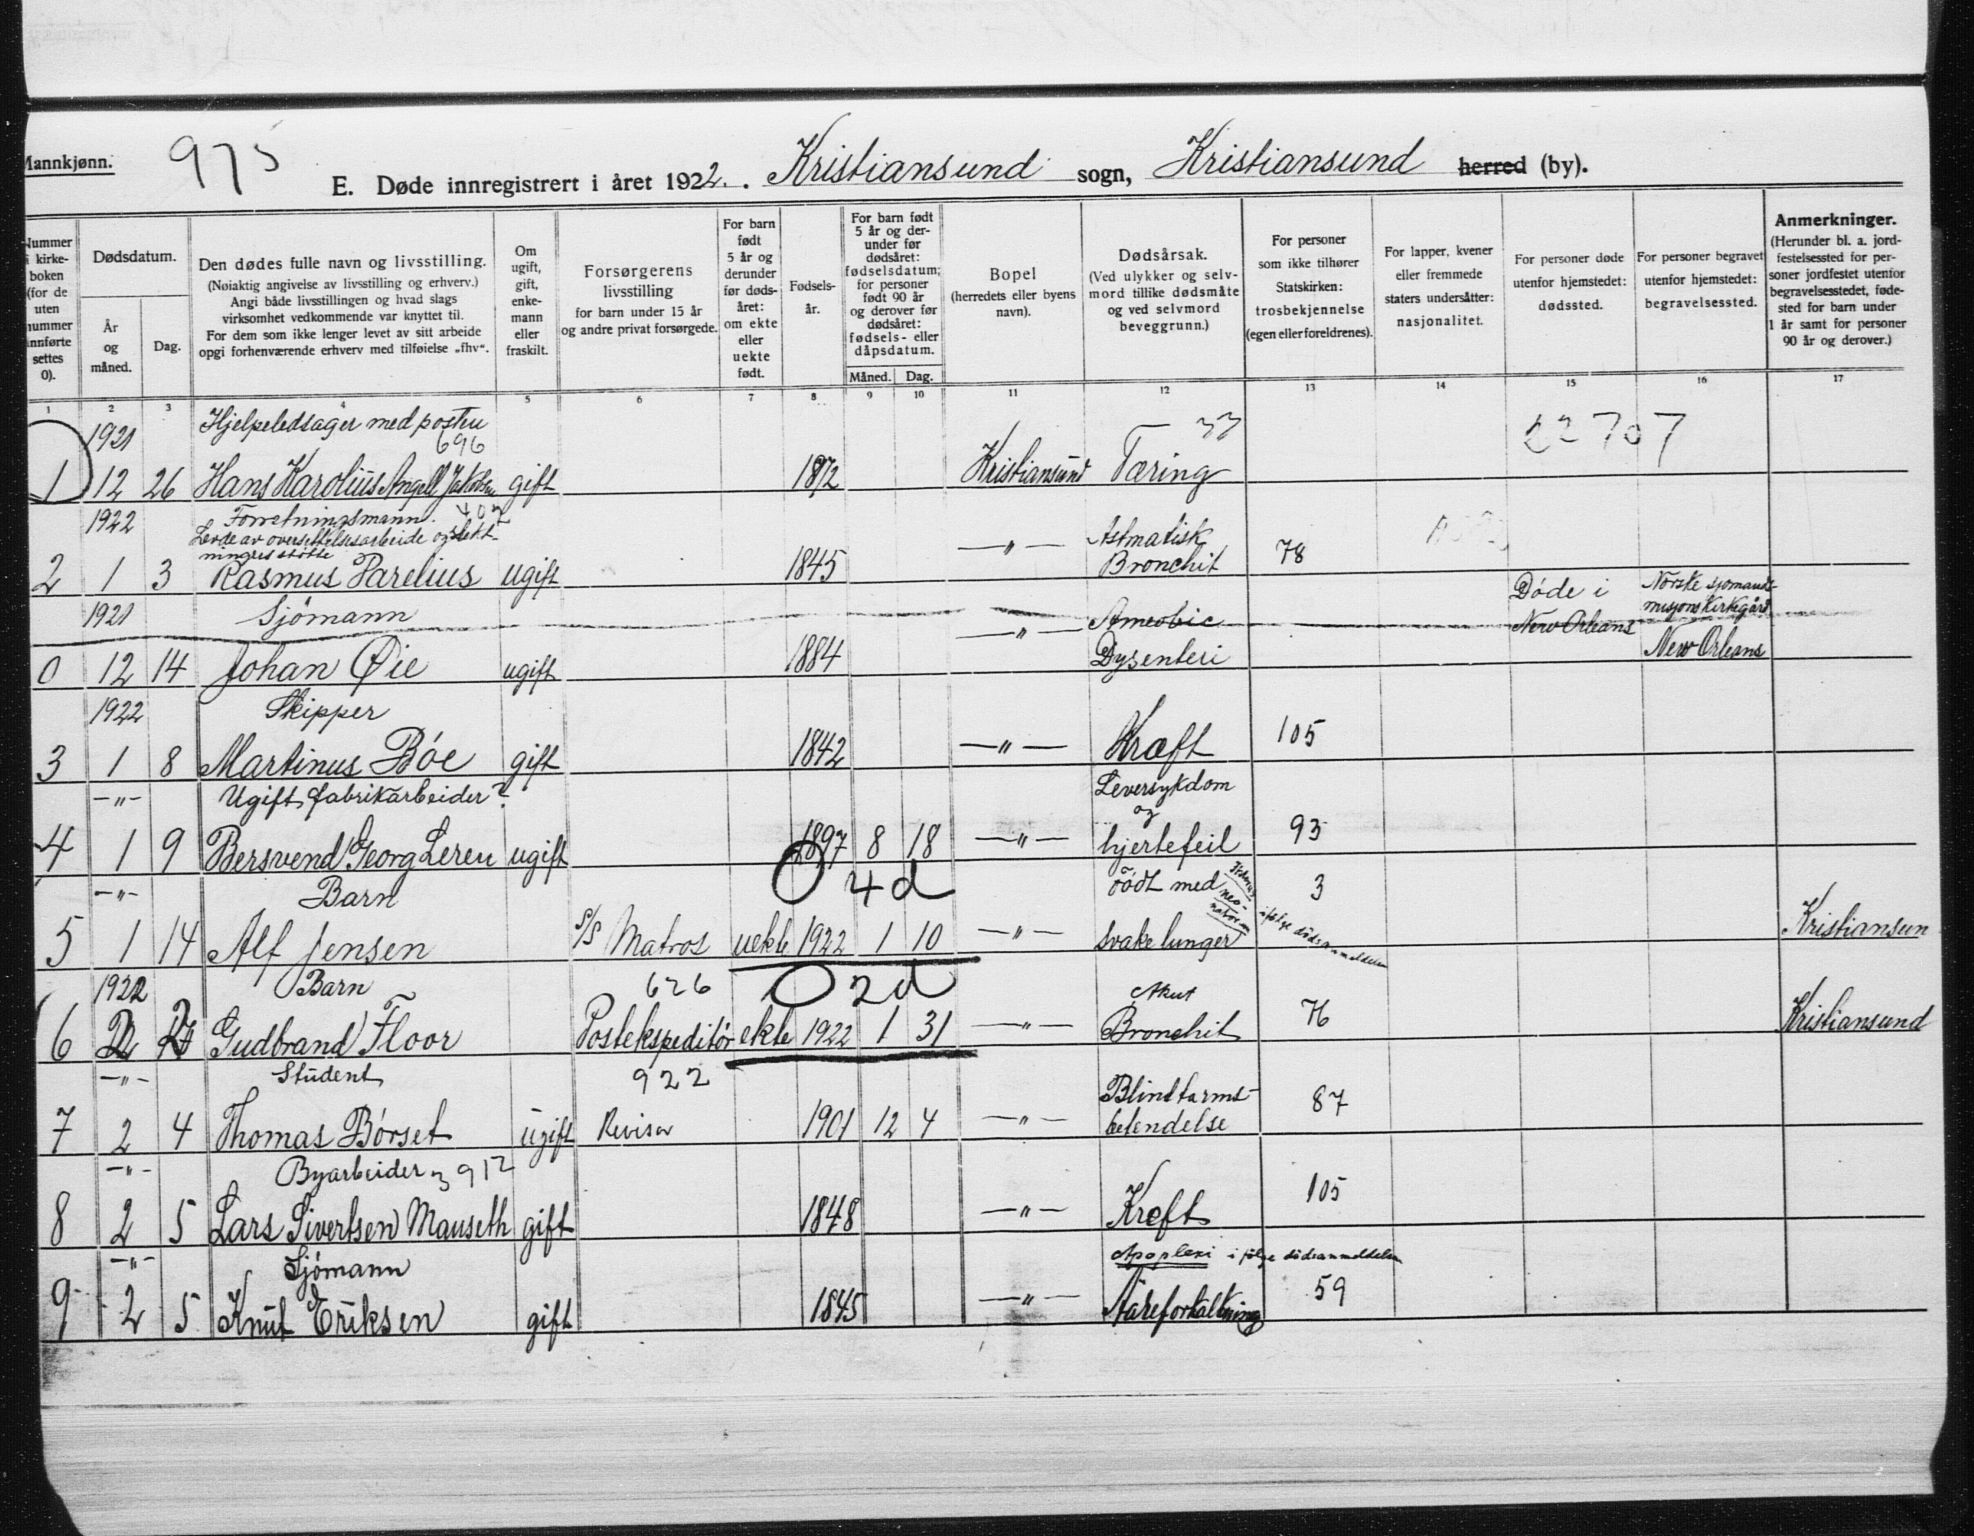 Mannkjønn.
975
E. Døde innregistrert i året 1922. Kristiansund sogn, Kristiansund herred (by).
Nummer i kirkeboken (for de uten nummer innførte settes 0).
Dødsdatum.
År og måned.
Dag.
Den dødes fulle navn og livsstilling.
(Nøiaktig angivelse av livsstilling og erhverv.)
Angi både livsstillingen og hvad slags
virksomhet vedkommende var knyttet til.
For dem som ikke lenger levet av sitt arbeide
opgi forhenværende erhverv med tilføielse „fhv“.
Om ugift, gift, enkemann eller fraskilt.
Forsørgerens
livsstilling
for barn under 15 år
og andre privat forsørgede.
For barn født 5 år og derunder før dødsåret: om ekte eller uekte født.
Fødselsår.
For barn født 5 år og derunder før dødsåret: fødselsdatum; for personer født 90 år og derover før dødsåret: fødsels- eller dåpsdatum.
Måned. Dag.
Bopel
(herredets eller byens navn).
Dødsårsak.
(Ved ulykker og selvmord tillike dødsmåte og ved selvmord beveggrunn.)
For personer
som ikke tilhører
Statskirken:
trosbekjennelse
(egen eller foreldrenes).
For lapper, kvener
eller fremmede
staters undersåtter:
nasjonalitet.
For personer døde
utenfor hjemstedet:
dødssted.
For personer begravet
utenfor hjemstedet:
begravelsessted.
Anmerkninger.
(Herunder bl. a. jordfestelsessted for personer jordfestet utenfor begravelsesstedet, fødested for barn under 1 år samt for personer 90 år og derover.)
1 2 3 4 5 6 7 8 9 10 11 12 13 14 15 16 17
1921 Hjelpeledsager med posten 33 22707
696
1 12 26 Hans Karolius Angell Jakobsen gift 1872 Kristiansund Tæring
1922 Forretningsmann.
Levde av oversettelsesarbeide og slektningers støtte Astmatisk
2 1 3 Rasmus Parelius ugift 1845 —„— Bronchit 78
1921 Sjömann Ameobic Döde i New Orleans Norske sjömandsmisjons kirkegård
0 12 14 Johan Øie ugift 1884 —„— Dysenteri New Orleans
1922 Skipper
3 1 8 Martinus Böe gift 1842 —„— Kræft 105
—„— Ugift, fabrikarbeider? Leversykdom og
4 1 9 Bersvend Georg Leren ugift 1897 8 18 —„— hjertefeil 93
—„— Barn 0 4 d födt med 3
i følge dödsanmeldelsen
5 1 14 Alf Jensen S/S Matros uekte 1922 1 10 —„— svake lunger Kristiansun
1922 Barn 626 0 2 d Akut
6 2 Gudbrand Floor Postekspeditör ekte 1922 1 31 —„— Bronchit 76 Kristiansund
—„— Student 922 Blindtarms-
7 2 4 Thomas Börset ugift Revisor 1901 12 4 —„— betendelse 87
—„— Byarbeider 3912
8 2 5 Lars Sivertsen Mauseth gift 1848 —„— Kreft 105
—„— Sjömann Apoplexi i følge dödsanmeldelsen
9 2 5 Knut Eriksen gift 1845 —„— Åreforkalkning 59